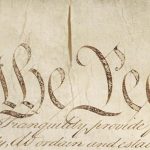 the Pe
Tranquility, provide f
y, do ordain and estab